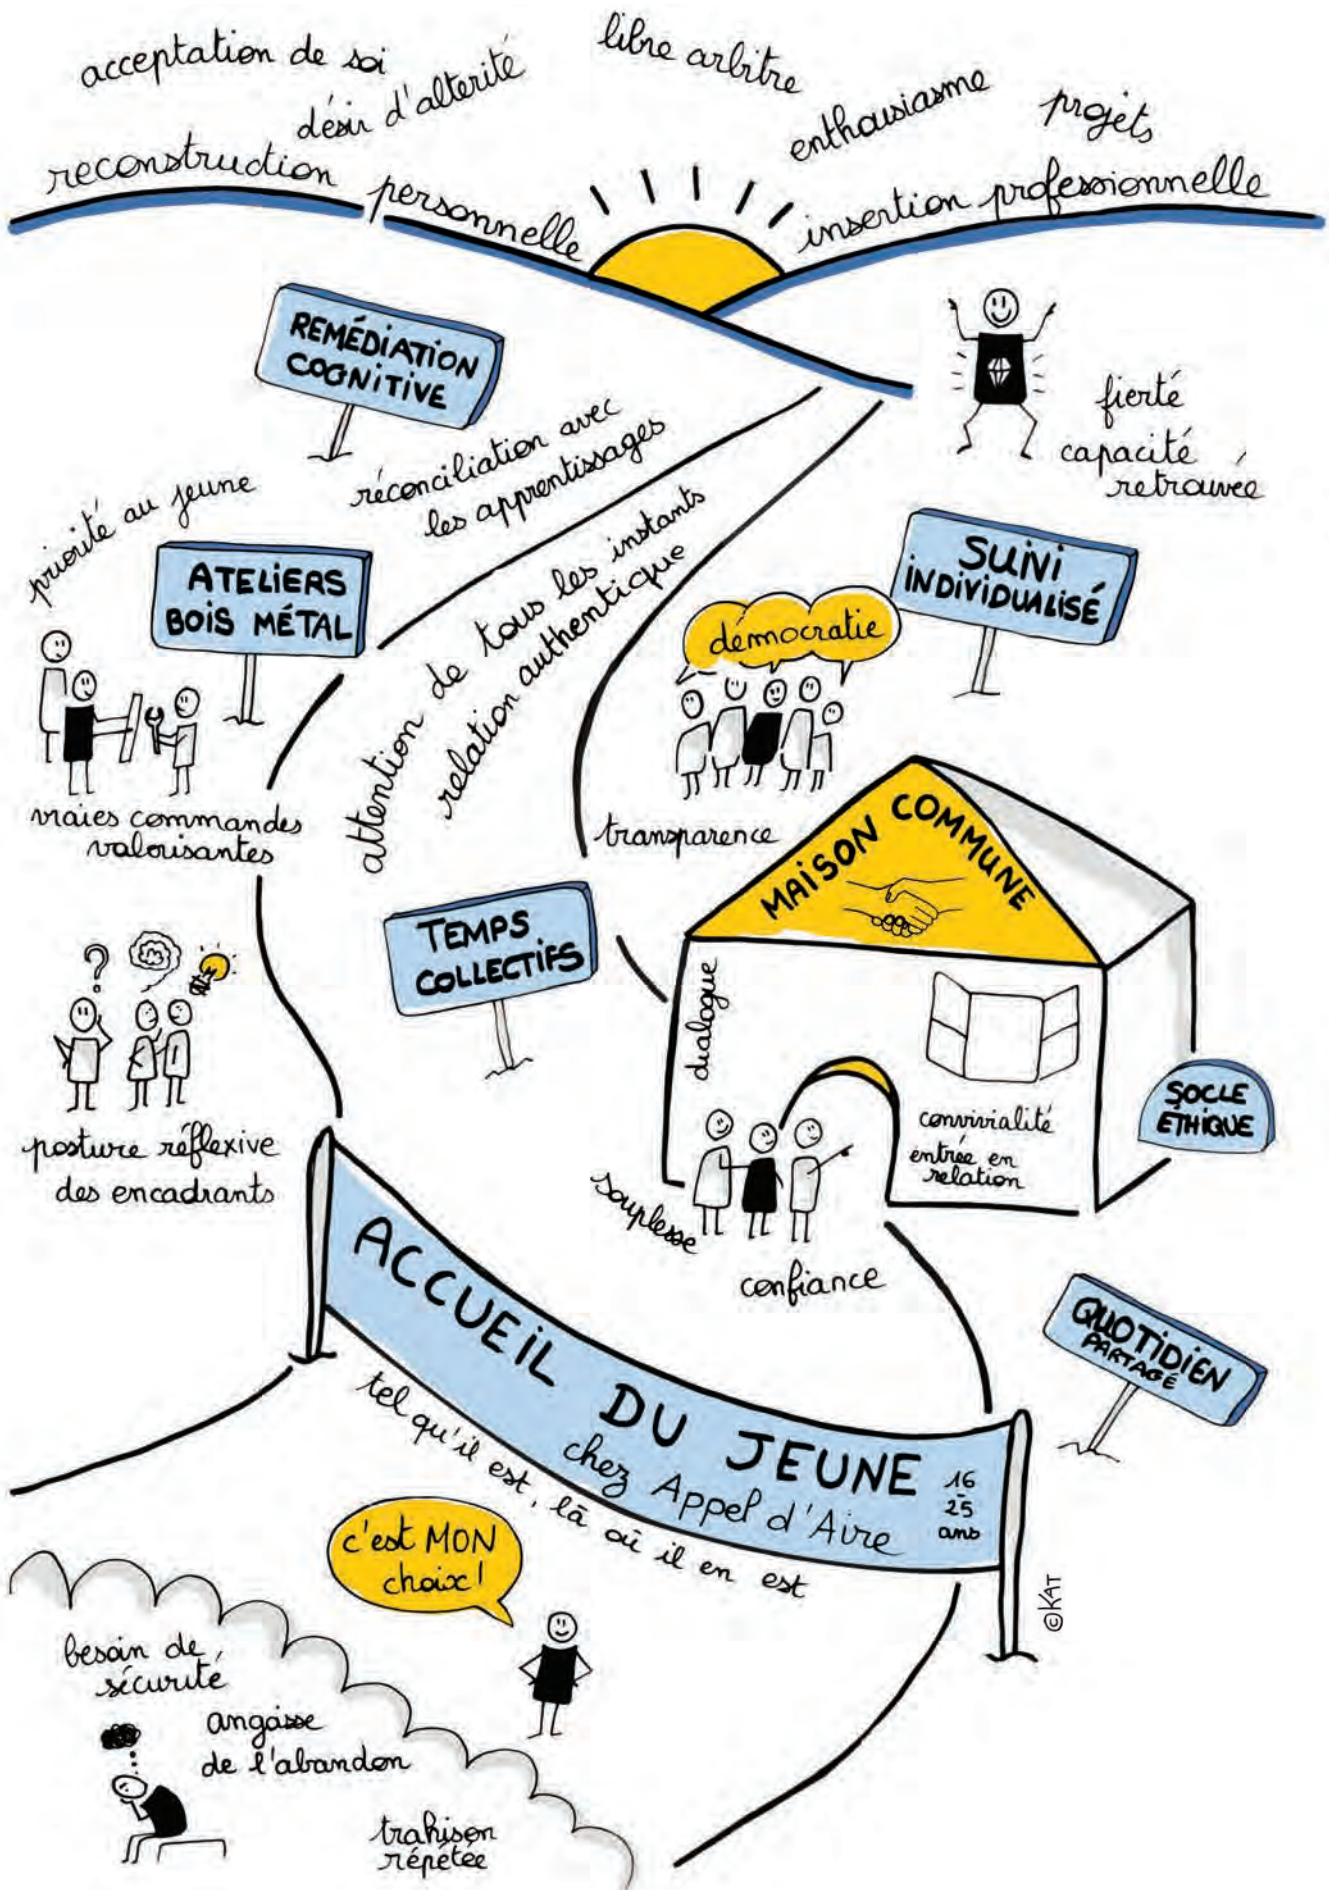 acceptation de soi
désir d'alterité
libre arbitre
enthousiasme
projets
reconstruction personnelle
insertion professionnelle
REMÉDIATION
COGNITIVE
réconciliation avec
les apprentissages
fierté
capacité
retrouvée
priorité au jeune
ATELIERS
BOIS MÉTAL
vraies commandes
valorisantes
attention de tous les instants
relation authentique
SUIVI
INDIVIDUALISÉ
démocratie
transparence
MAISON COMMUNE
TEMPS
COLLECTIFS
dialogue
convivialité
entrée en
relation
SOCLE
ÉTHIQUE
?
posture réflexive
des encadrants
souplesse
confiance
QUOTIDIEN
PARTAGÉ
ACCUEIL DU JEUNE
chez Appel d'Aire
16
-
25
ans
tel qu'il est, là où il en est
c'est MON
choix!
©KAT
besoin de
sécurité
angoisse
de l'abandon
trahison
répétée